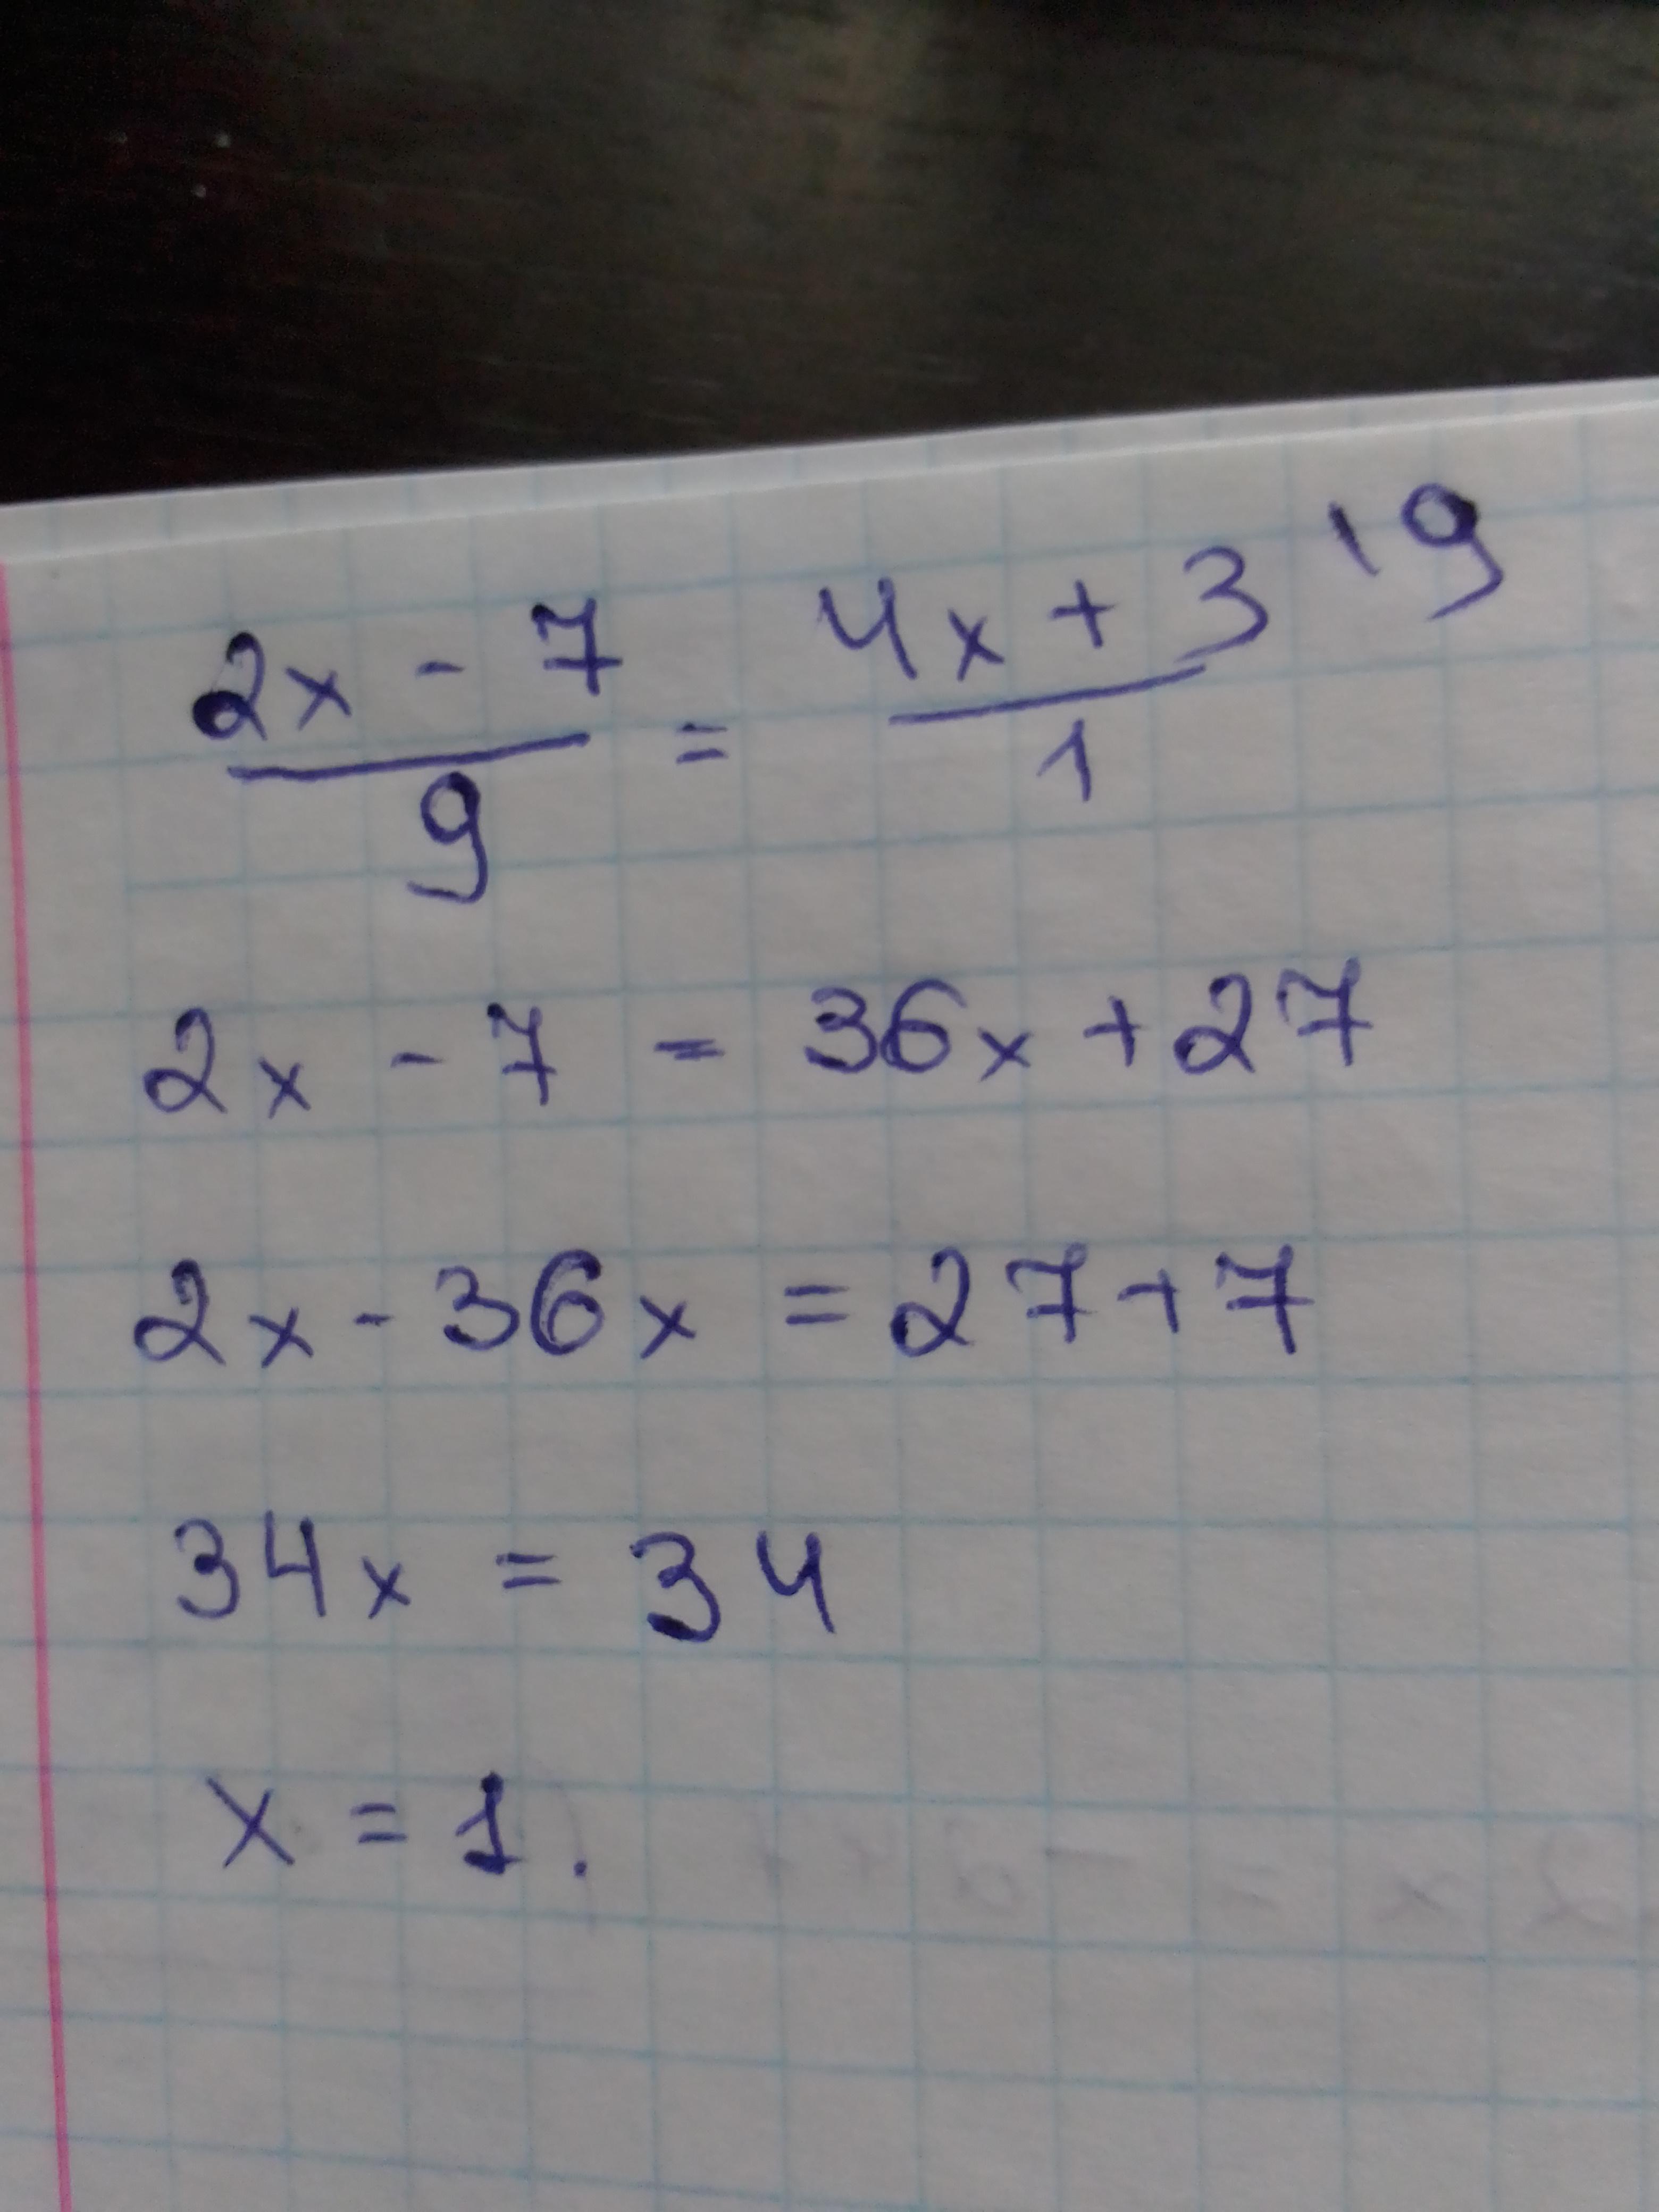 2x - 7 / 9 = 4x + 3 / 1 \ 9
2x - 7 = 36x + 27
2x - 36x = 27 + 7
34x = 34
x = 1.